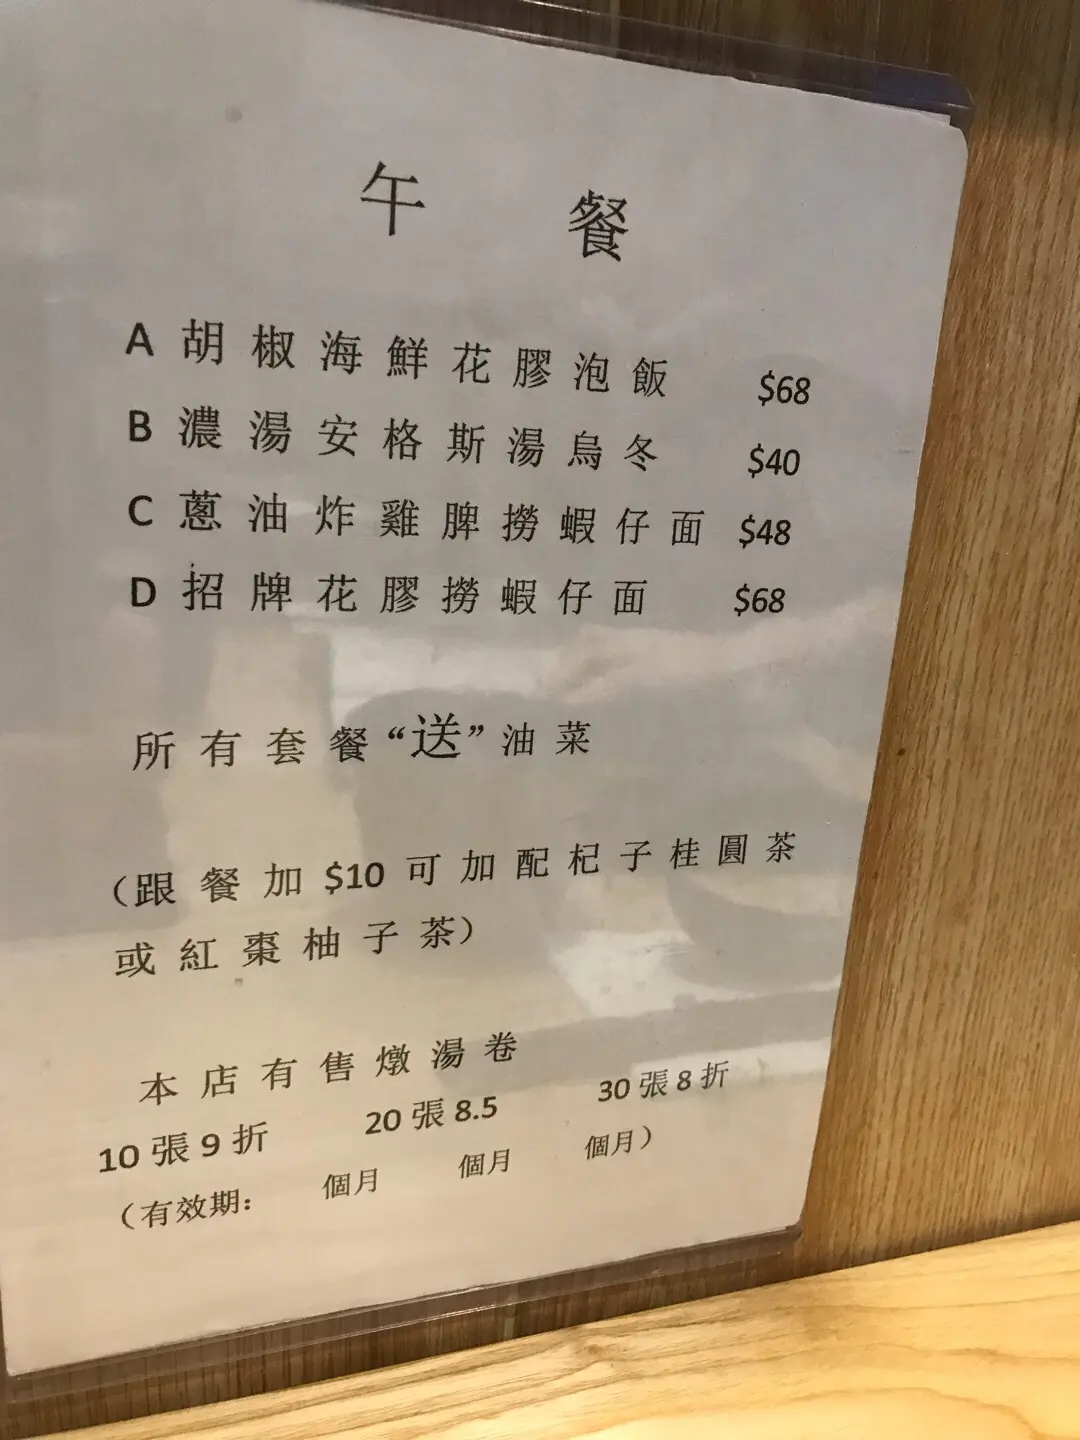 午 餐
A 胡椒海鮮花膠泡飯 $68
B 濃湯安格斯湯烏冬 $40
C 蔥油炸雞脾撈蝦仔面 $48
D 招牌花膠撈蝦仔面 $68
所有套餐“送”油菜
(跟餐加 $10 可加配杞子桂圓茶
或紅棗柚子茶)
本店有售燉湯卷
10 張 9 折 20 張 8.5 30 張 8 折
(有效期: 個月 個月 個月)